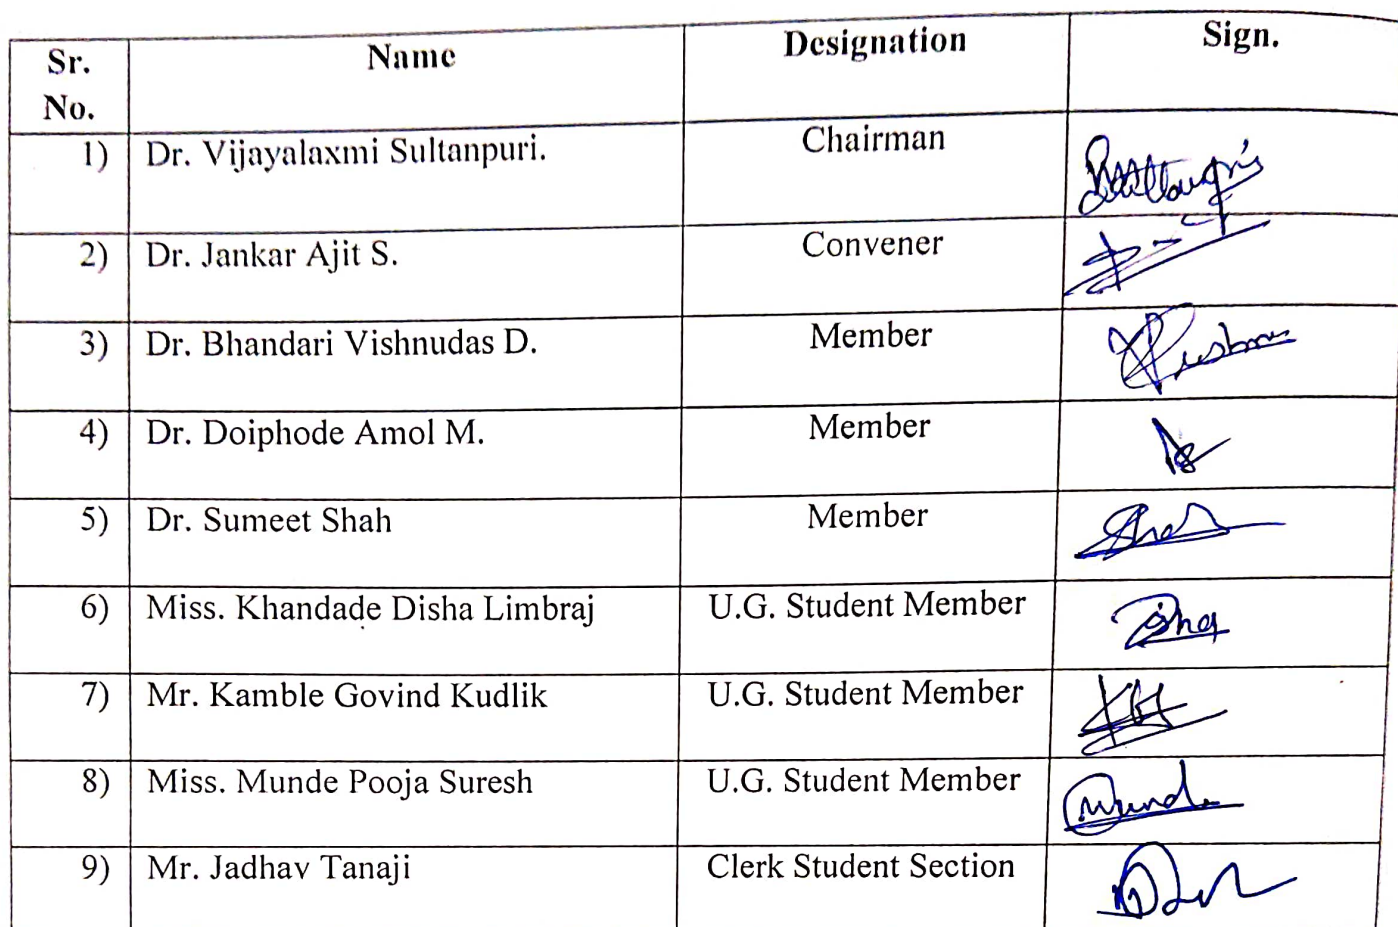 Sr. No. Name Designation Sign.
1) Dr. Vijayalaxmi Sultanpuri. Chairman
2) Dr. Jankar Ajit S. Convener
3) Dr. Bhandari Vishnudas D. Member
4) Dr. Doiphode Amol M. Member
5) Dr. Sumeet Shah Member
6) Miss. Khandade Disha Limbraj U.G. Student Member
7) Mr. Kamble Govind Kudlik U.G. Student Member
8) Miss. Munde Pooja Suresh U.G. Student Member
9) Mr. Jadhav Tanaji Clerk Student Section